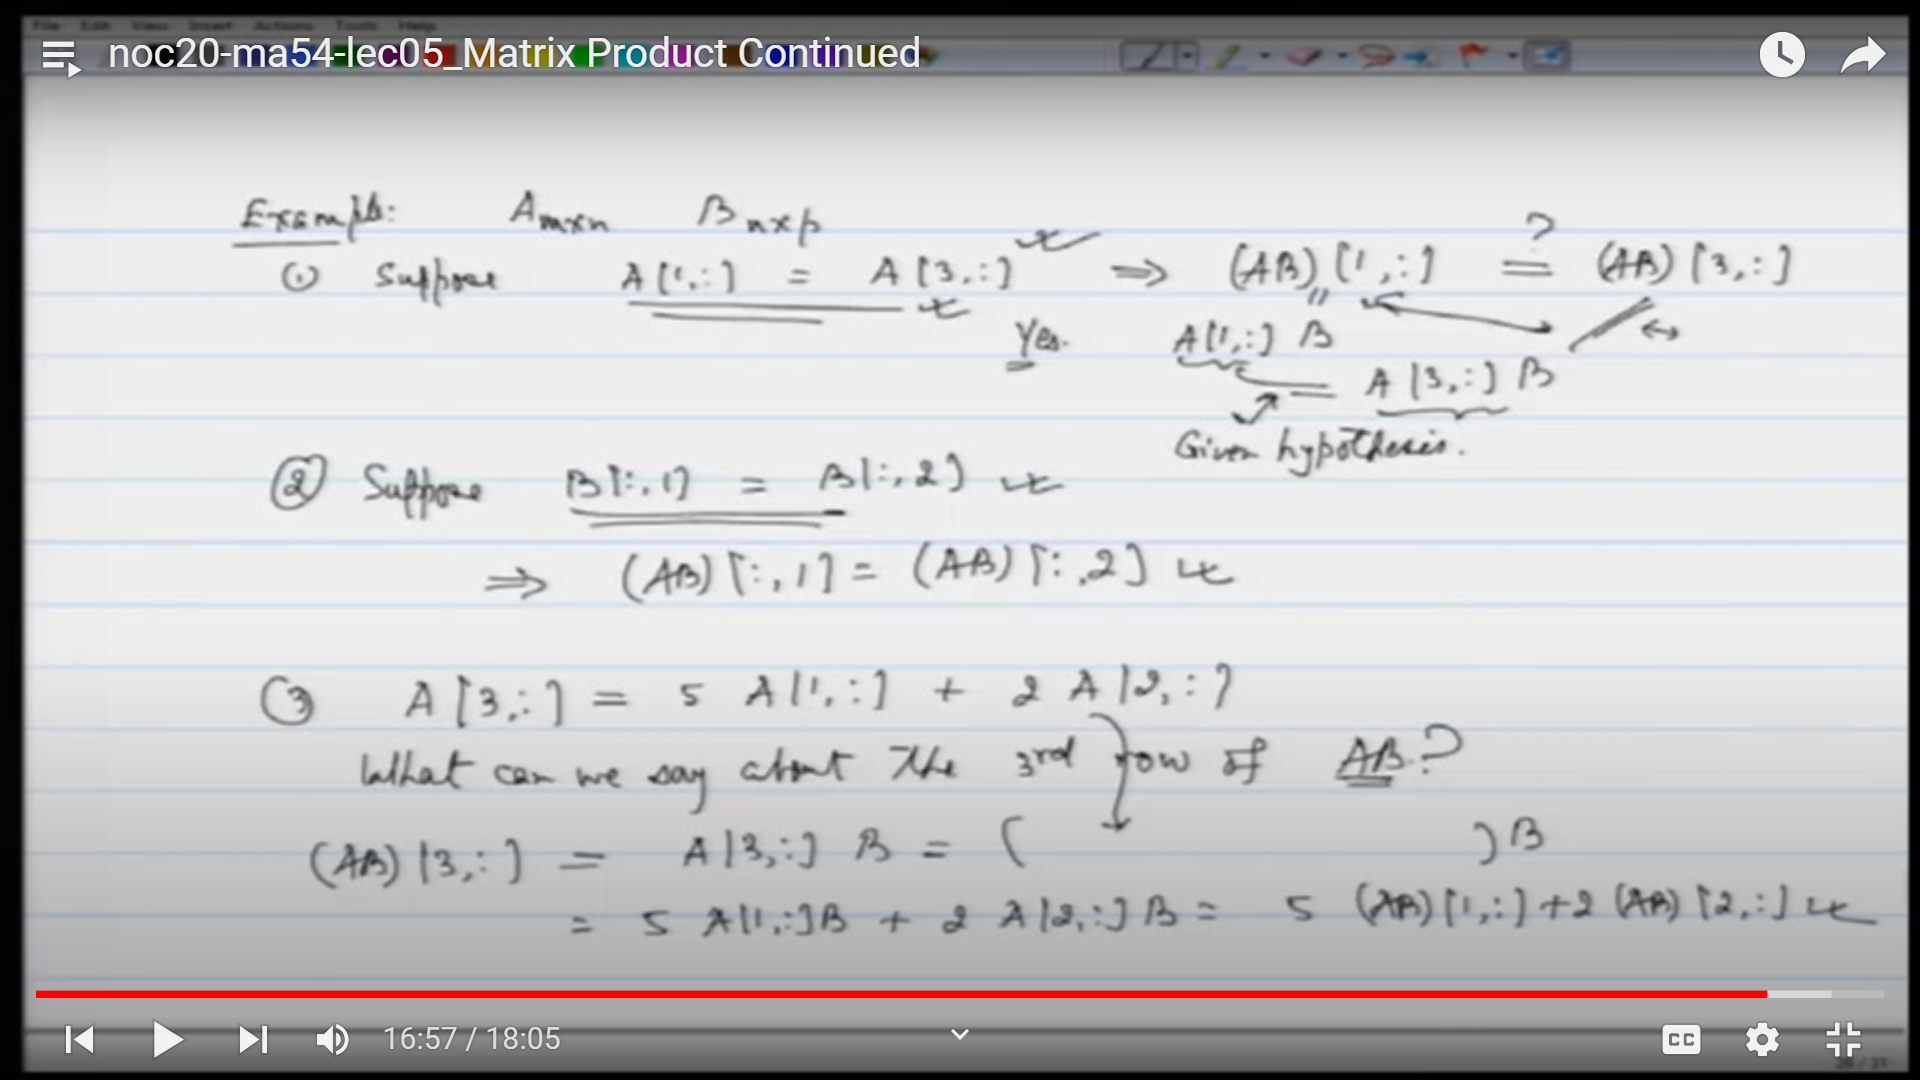 File Edit View Insert Actions Tools Help
noc20-ma54-lec05_Matrix Product Continued
Example: A m×n B n×p
① Suppose A[1,:] = A[3,:] ⇒ (AB)[1,:] ?= (AB)[3,:]
Yes. A[1,:] B
= A[3,:] B
Given hypothesis.
② Suppose B[:,1] = B[:,2]
⇒ (AB)[:,1] = (AB)[:,2]
③ A[3,:] = 5 A[1,:] + 2 A[2,:]
What can we say about the 3rd row of AB?
(AB)[3,:] = A[3,:] B = ( ) B
= 5 A[1,:]B + 2 A[2,:] B = 5 (AB)[1,:] + 2 (AB)[2,:]
16:57 / 18:05
CC